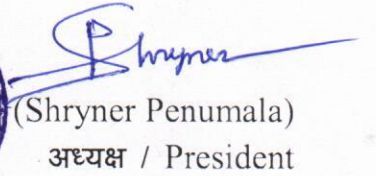 Shryner
(Shryner Penumala)
अध्यक्ष / President